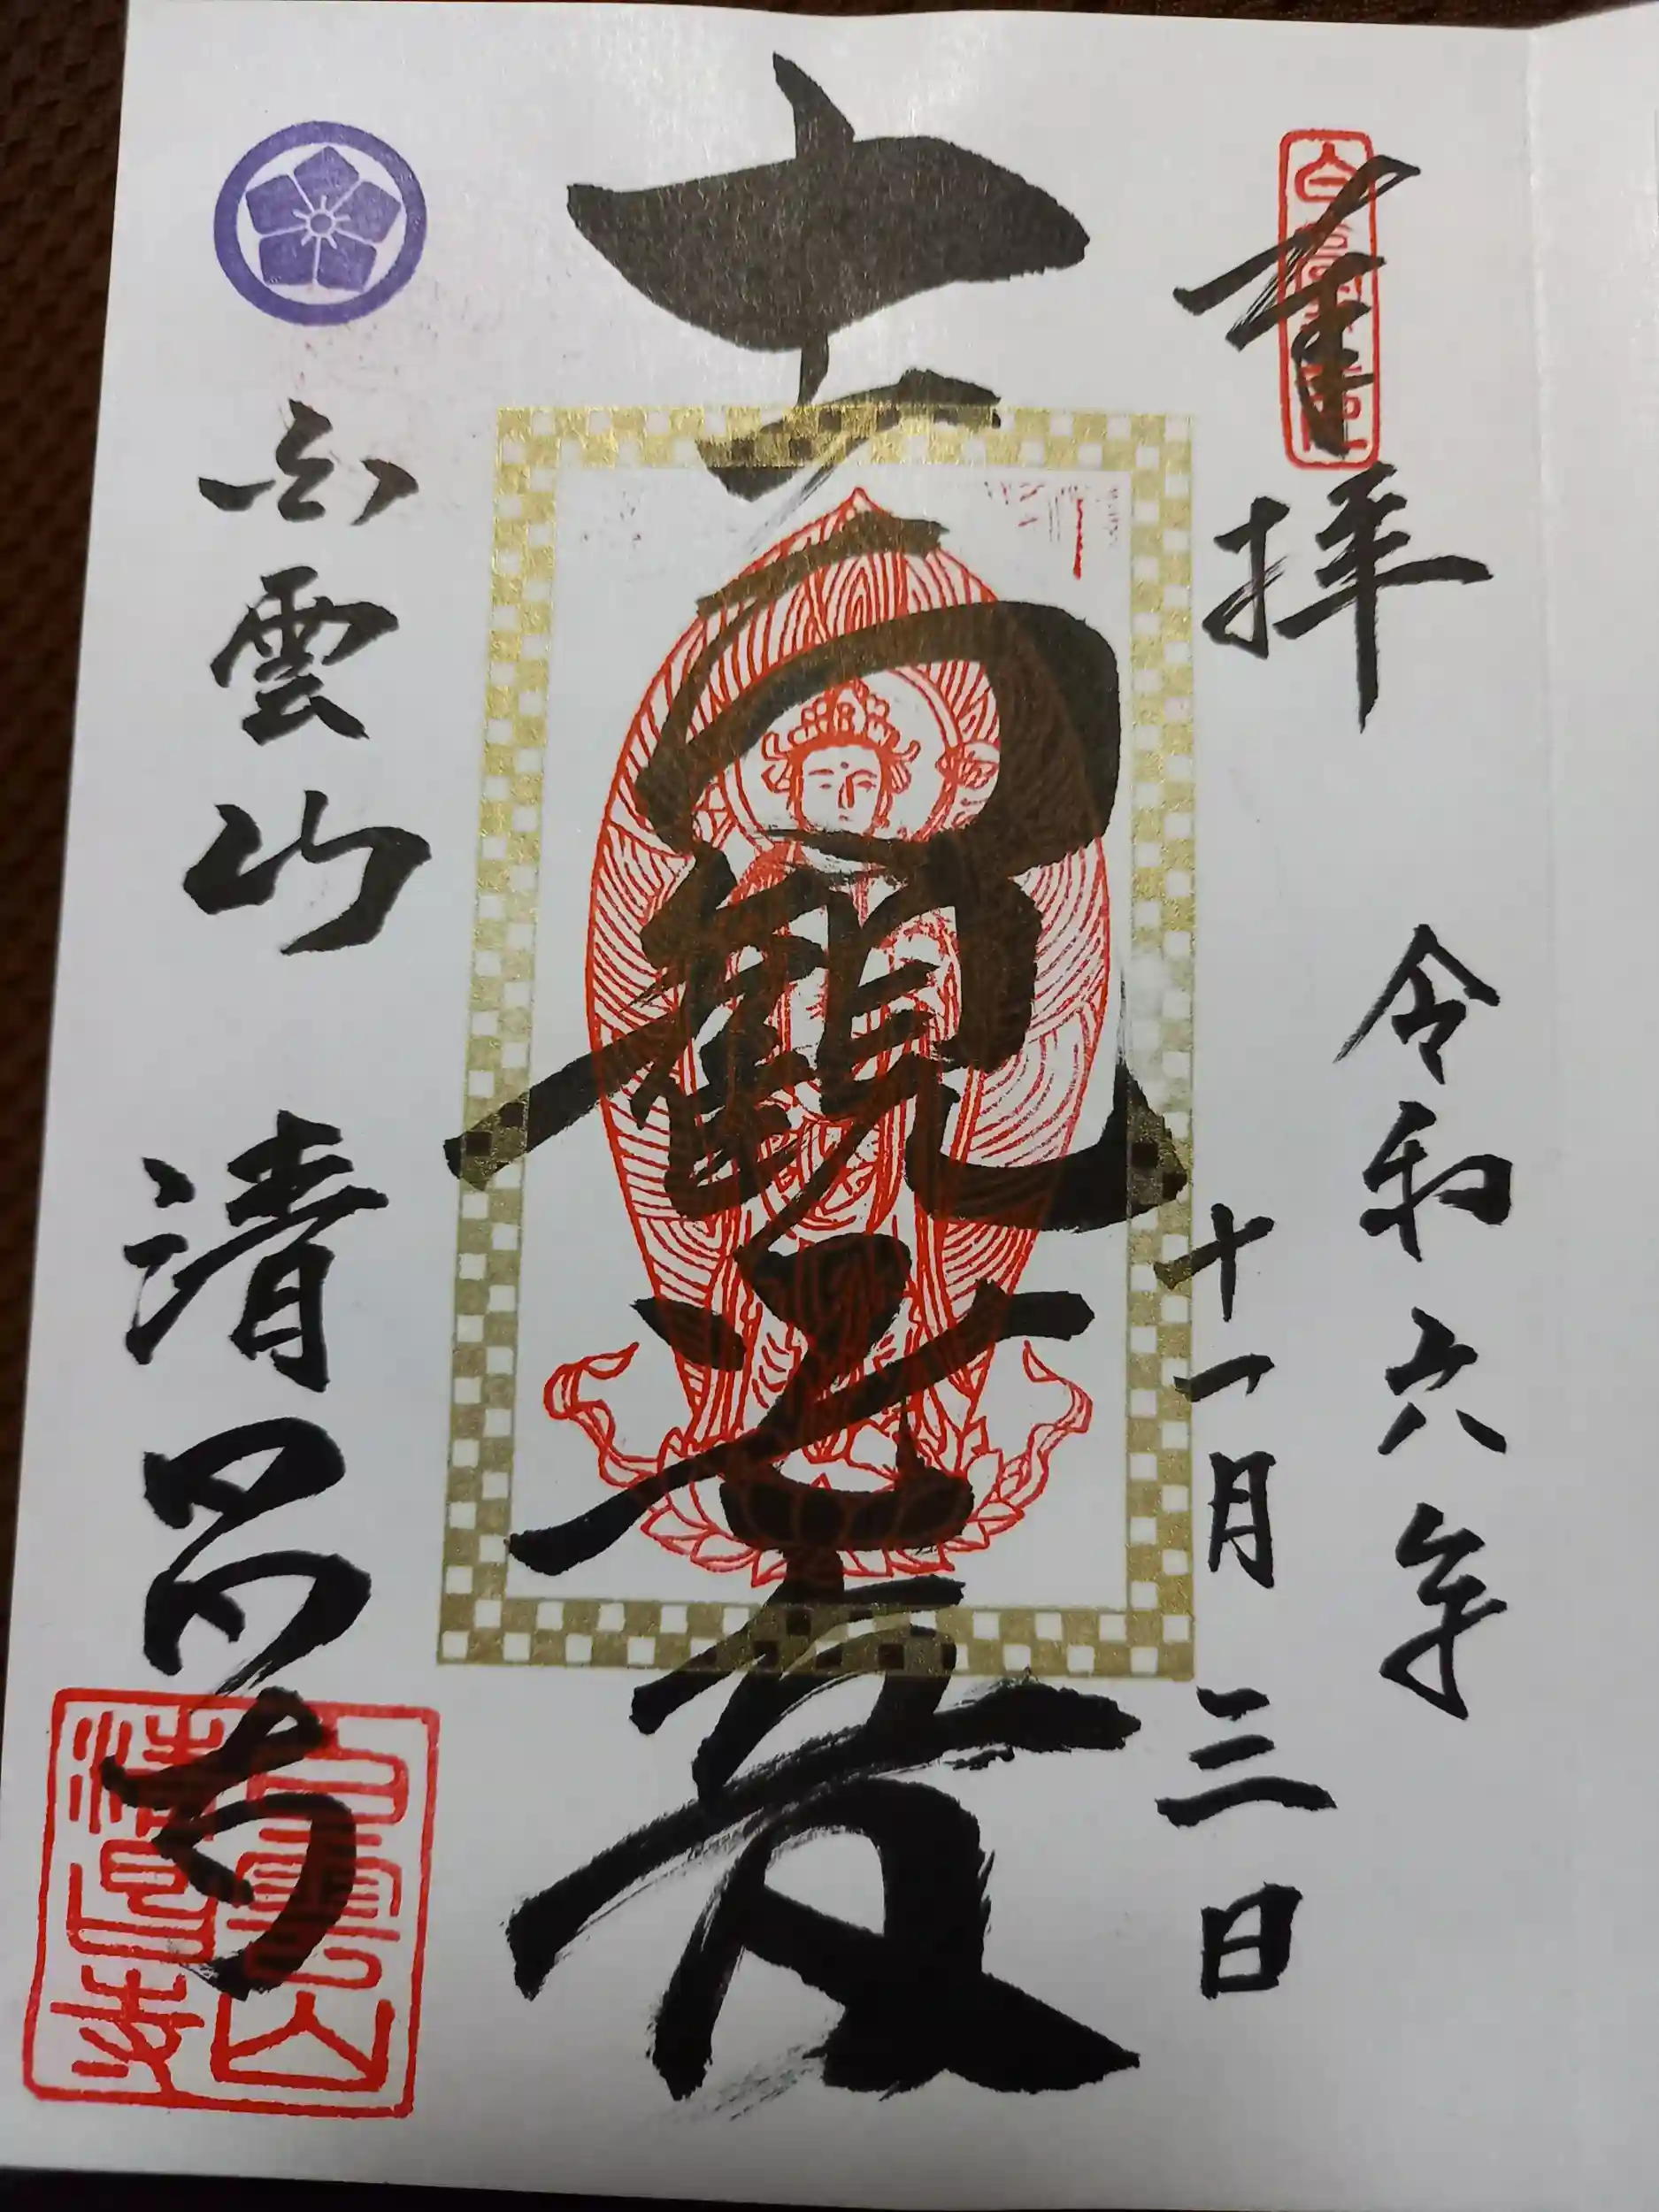 奉拝
令和六年
十一月三日
十一面観音
白雲山 清昌寺
白雲山
清昌寺